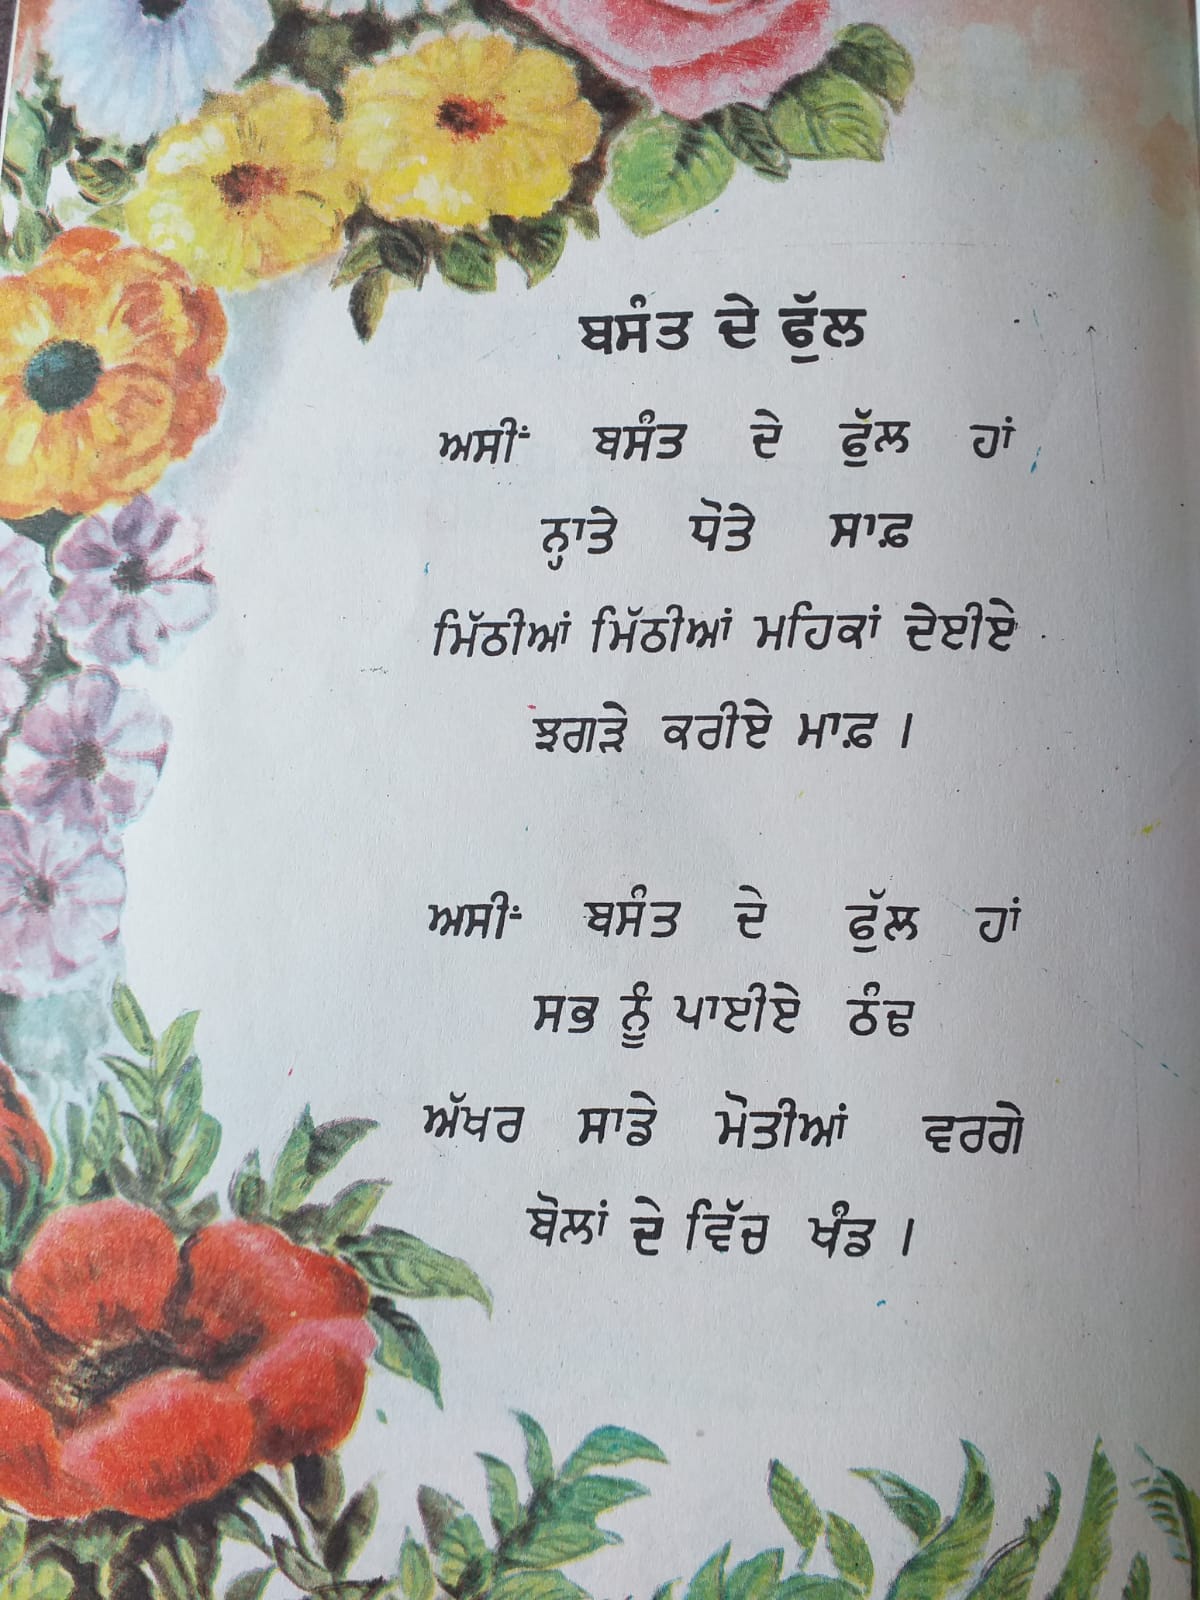 ਬਸੰਤ ਦੇ ਫੁੱਲ
ਅਸੀਂ ਬਸੰਤ ਦੇ ਫੁੱਲ ਹਾਂ
ਨ੍ਹਾਤੇ ਧੋਤੇ ਸਾਫ਼
ਮਿੱਠੀਆਂ ਮਿੱਠੀਆਂ ਮਹਿਕਾਂ ਦੇਈਏ
ਝਗੜੇ ਕਰੀਏ ਮਾਫ਼ ।
ਅਸੀਂ ਬਸੰਤ ਦੇ ਫੁੱਲ ਹਾਂ
ਸਭ ਨੂੰ ਪਾਈਏ ਠੰਢ
ਅੱਖਰ ਸਾਡੇ ਮੋਤੀਆਂ ਵਰਗੇ
ਬੋਲਾਂ ਦੇ ਵਿੱਚ ਖੰਡ ।